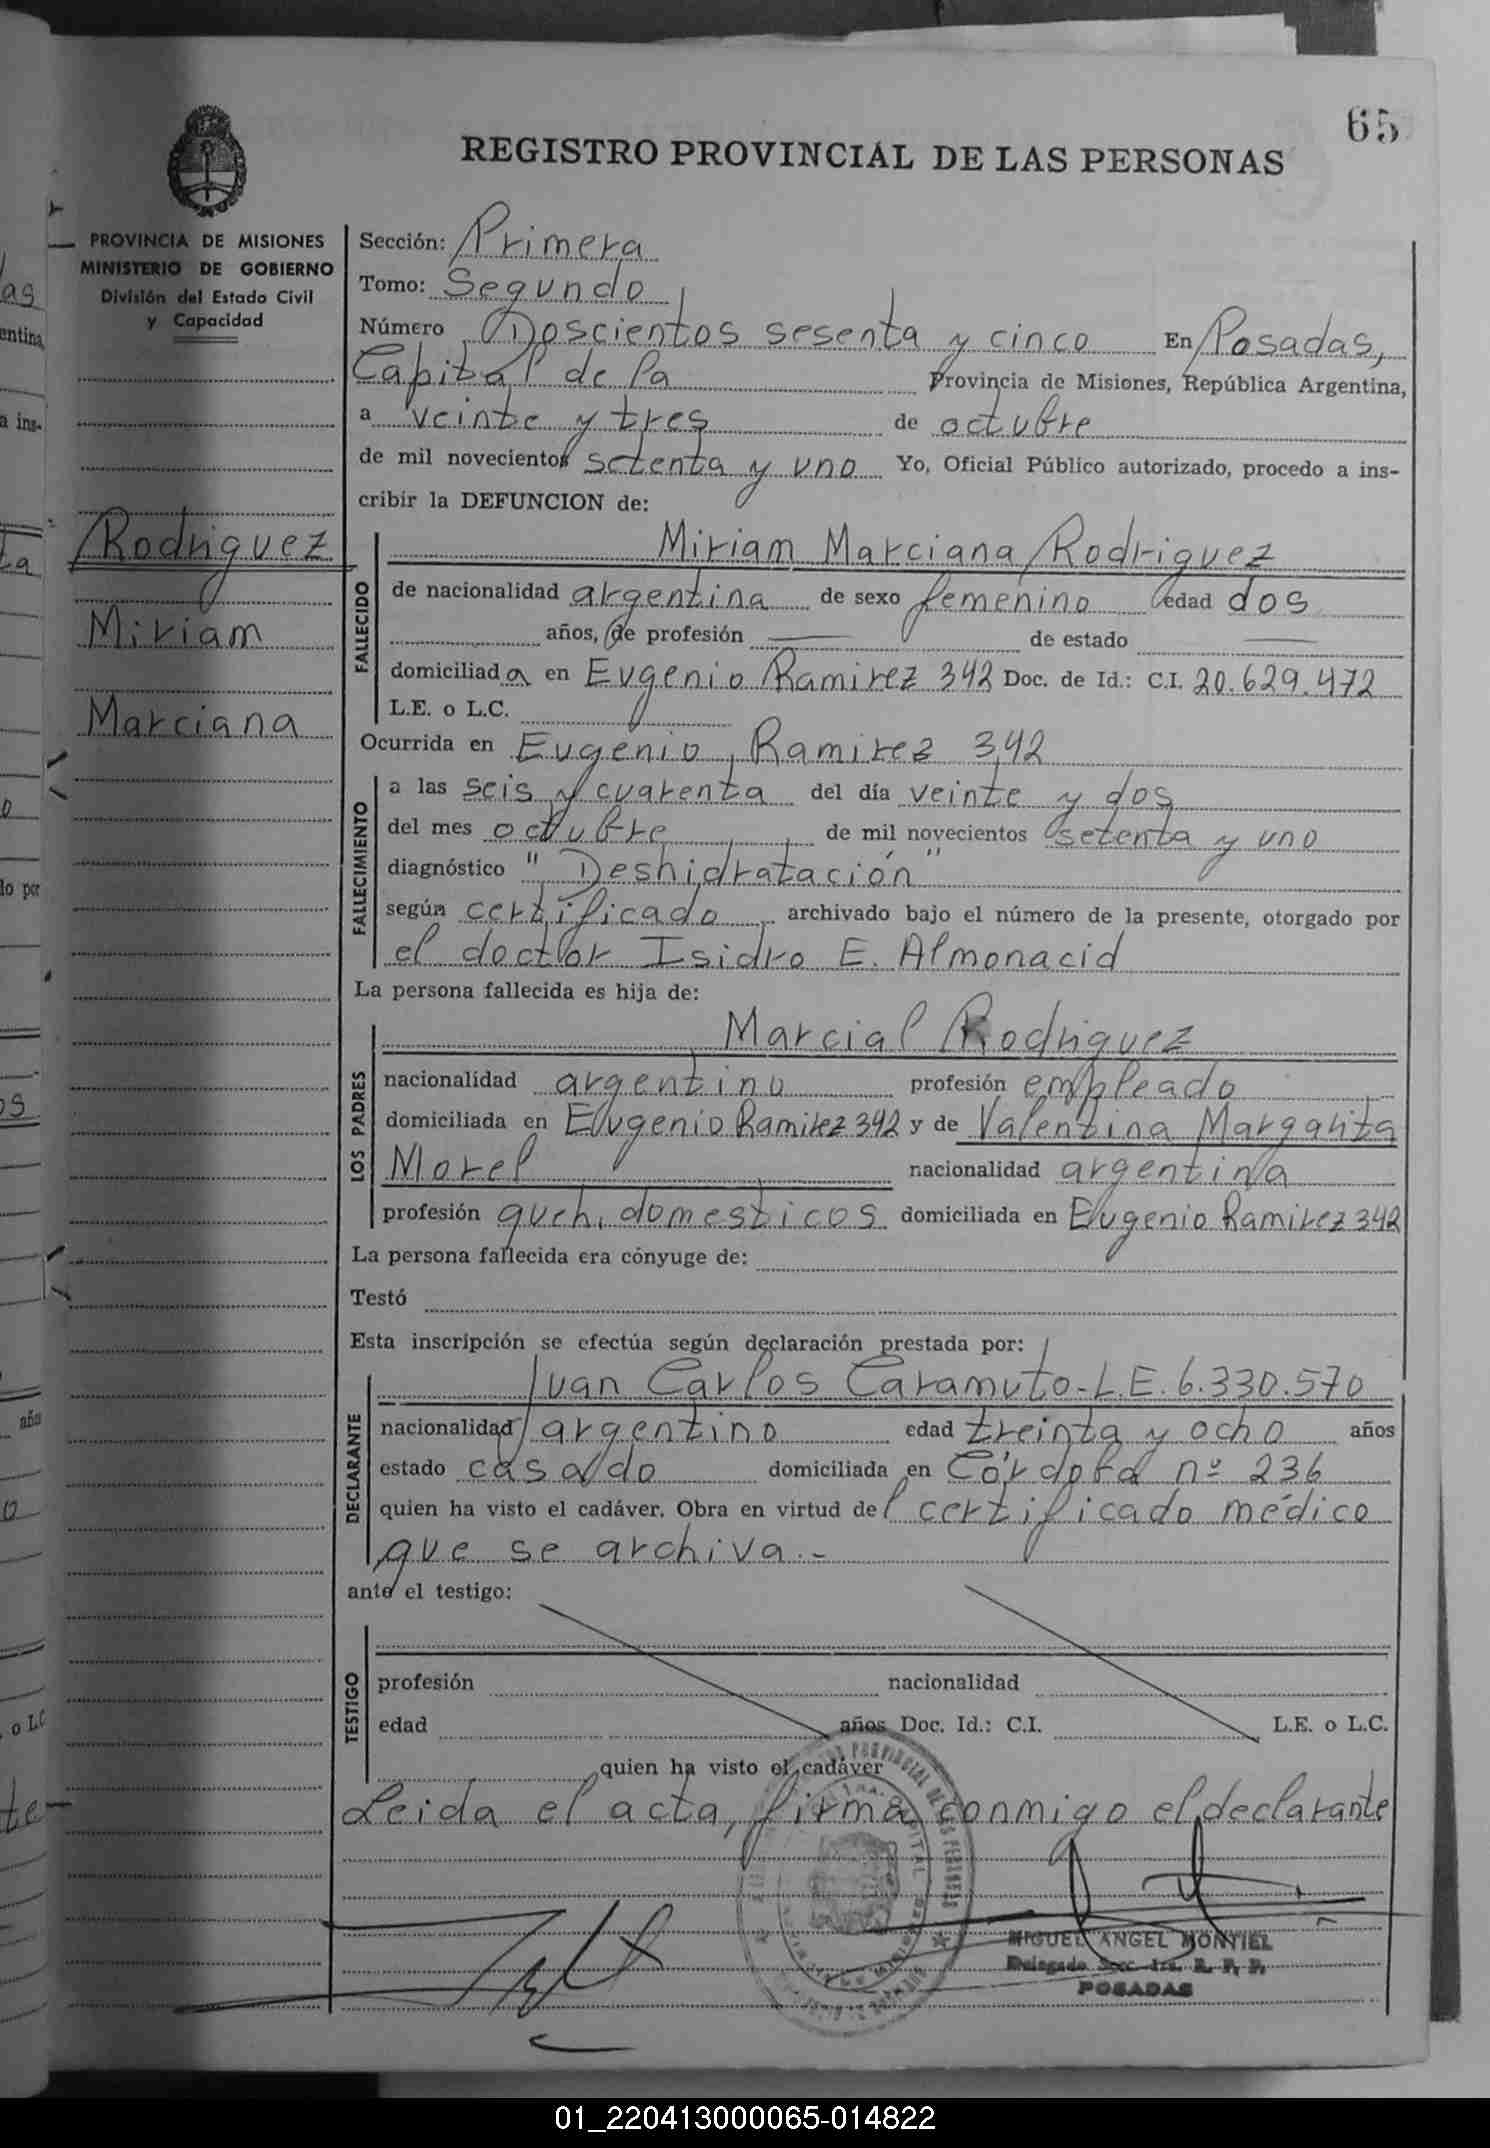 65
REGISTRO PROVINCIAL DE LAS PERSONAS
PROVINCIA DE MISIONES
MINISTERIO DE GOBIERNO
División del Estado Civil
y Capacidad
Rodriguez
Miriam
Marciana
Sección: Primera
Tomo: Segundo
Número Doscientos sesenta y cinco En Posadas,
Capital de la Provincia de Misiones, República Argentina,
a veinte y tres de octubre
de mil novecientos setenta y uno Yo, Oficial Público autorizado, procedo a ins-
cribir la DEFUNCION de:
FALLECIDO
Miriam Marciana Rodriguez
de nacionalidad argentina de sexo femenino edad dos
años, de profesión de estado
domiciliada en Eugenio Ramirez 342 Doc. de Id.: C.I. 20.629.472
L.E. o L.C.
Ocurrida en Eugenio Ramirez 342
FALLECIMIENTO
a las seis y cuarenta del día veinte y dos
del mes octubre de mil novecientos setenta y uno
diagnóstico "Deshidratación"
según certificado archivado bajo el número de la presente, otorgado por
el doctor Isidro E. Almonacid
La persona fallecida es hija de:
LOS PADRES
Marcial Rodriguez
nacionalidad argentino profesión empleado
domiciliada en Eugenio Ramirez 342 y de Valentina Margarita
Morel nacionalidad argentina
profesión queh. domesticos domiciliada en Eugenio Ramirez 342
La persona fallecida era cónyuge de:
Testó
Esta inscripción se efectúa según declaración prestada por:
DECLARANTE
Juan Carlos Caramuto - L.E. 6.330.570
nacionalidad argentino edad treinta y ocho años
estado casado domiciliada en Córdoba nº 236
quien ha visto el cadáver. Obra en virtud del certificado médico
que se archiva.-
ante el testigo:
TESTIGO
profesión nacionalidad
edad años Doc. Id.: C.I. L.E. o L.C.
quien ha visto el cadáver
Leida el acta, firma conmigo el declarante
MIGUEL ANGEL MONTIEL
Delegado Secc. 1ra. R. P. P.
POSADAS
01_220413000065-014822